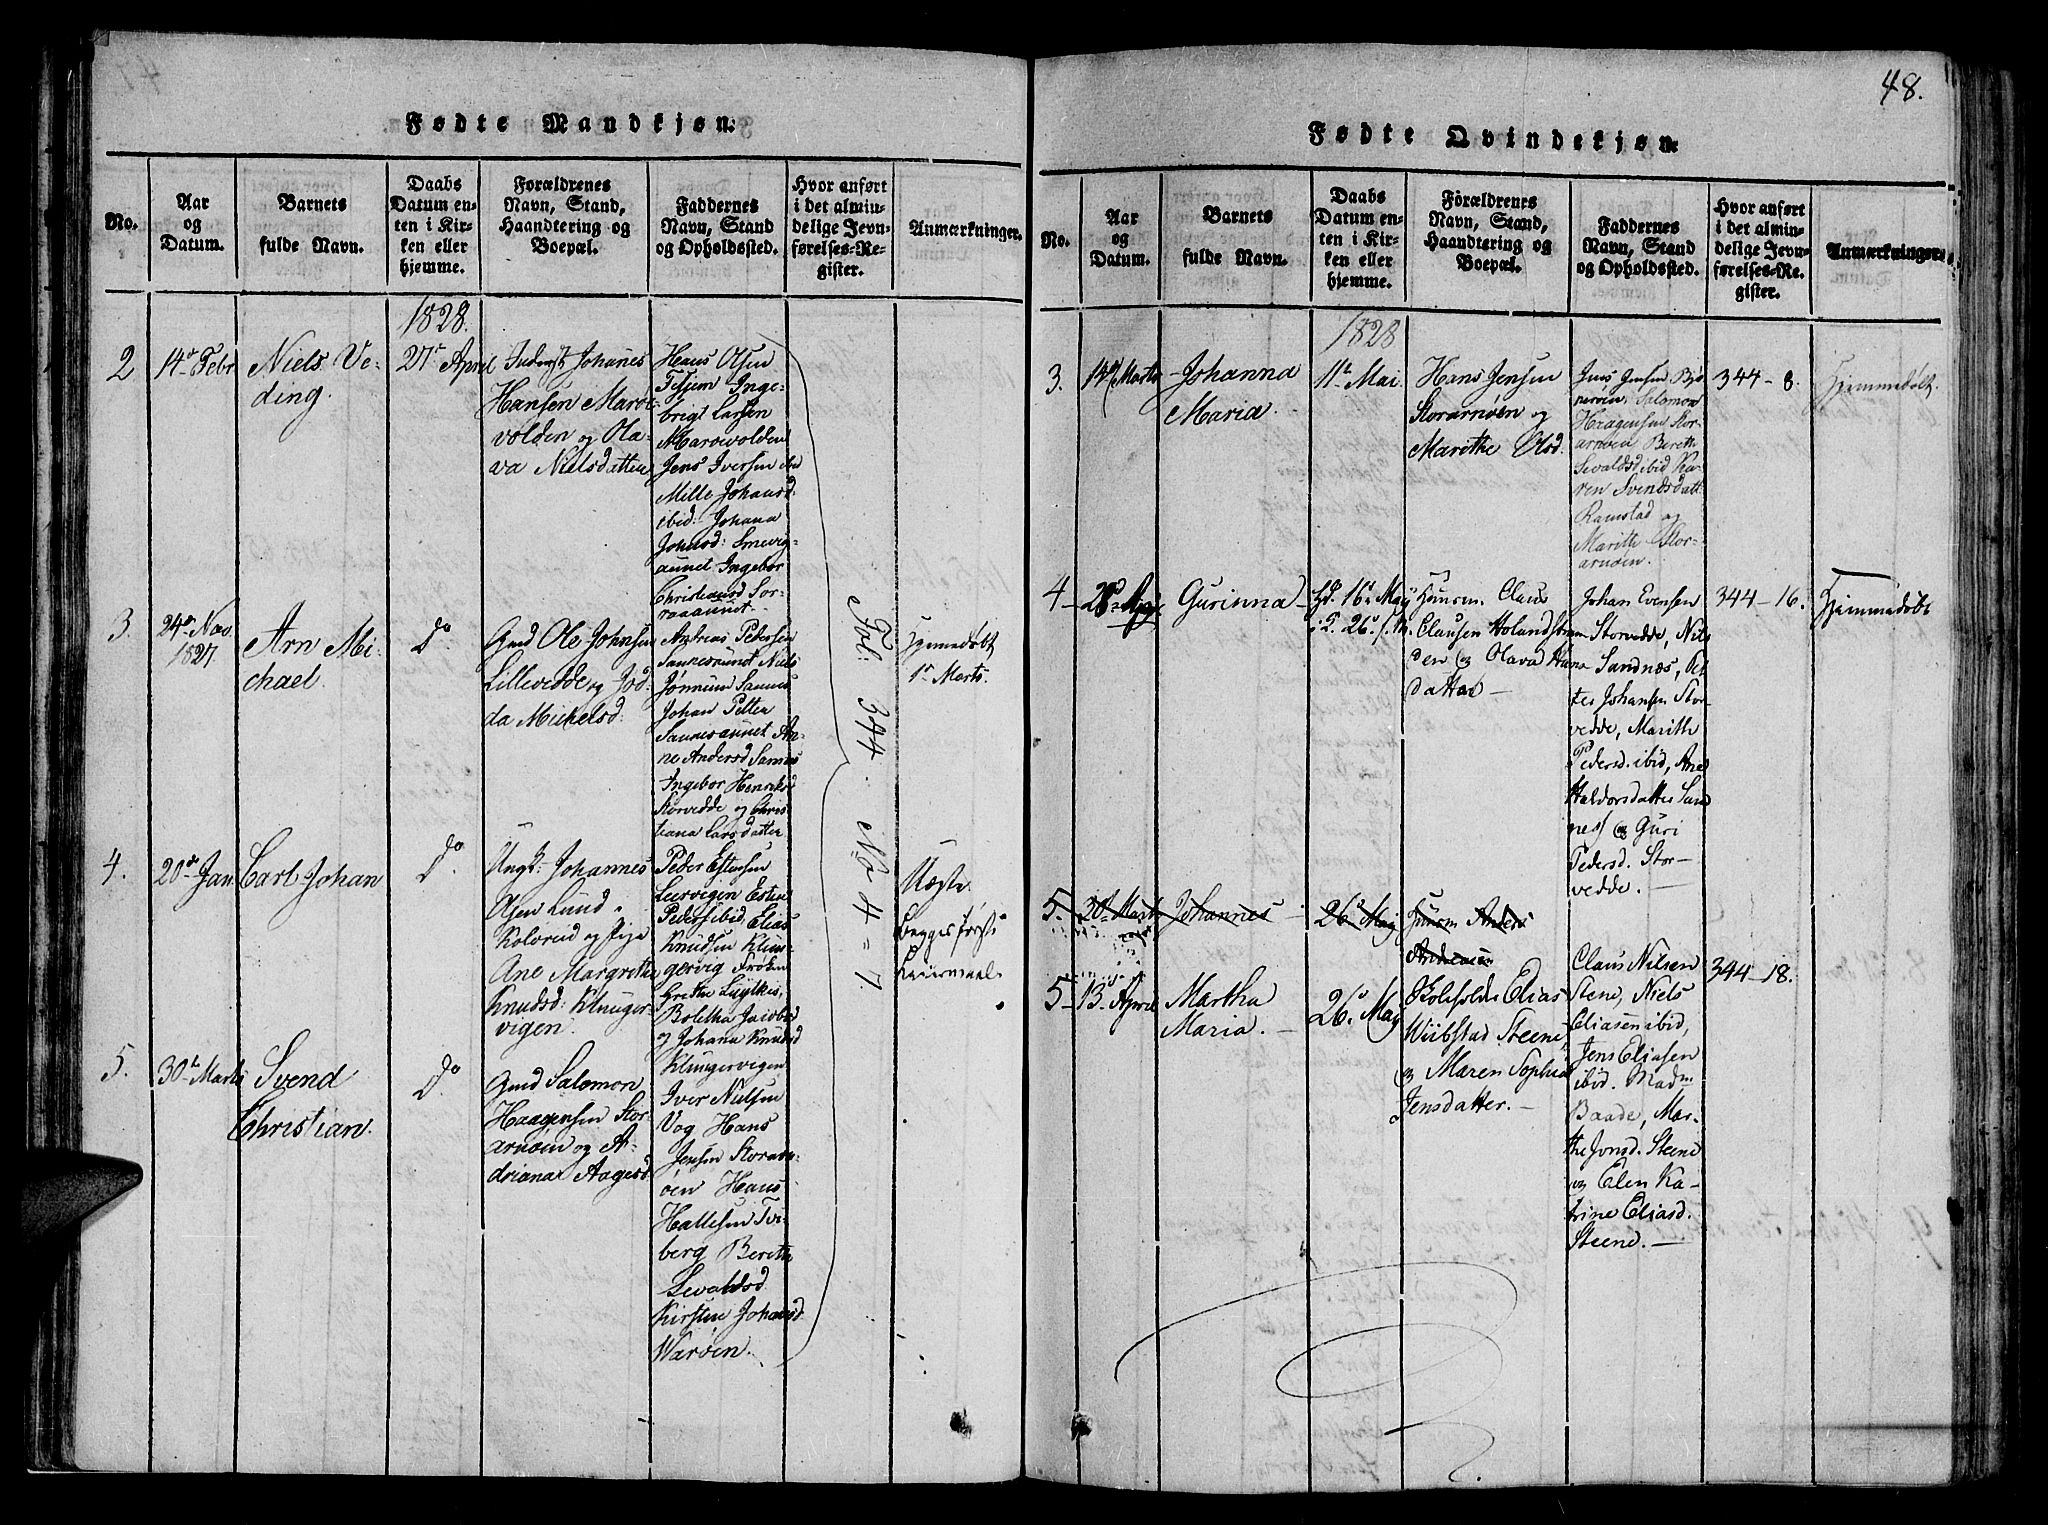 48.
Fødte Mandkjøn.
No.
Aar
og
Datum.
Barnets
fulde Navn.
Daabs
Datum en-
ten i Kir-
ken eller
hjemme.
Forældrenes
Navn, Stand,
Haandtering og
Boepæl.
Faddernes
Navn, Stand
og Opholdssted.
Hvor anført
i det almin-
delige Jevn-
førelses-Re-
gister.
Anmærkninger.
1828.
2
14de Febr
Niels Ve-
ding.
27de April
Johanes
Hansen Maro-
volden og Ola-
va Nielsdatter
Hans Olsen
Inge-
brigt Larsen
Marowolden
Jens Iversen ibid
Mille Johansd:
ibid: Johana
Johnsd:
aunet Ingebor
Christensd Sor-
aunet
3.
24de Nov.
1827.
Arn Mi-
chael.
do
Gmd Ole Johnsen
Lillevedde og Jod-
da Michelsd:
Andreas Petersen
Sannesaunet Niels
Jønnum Sannes
Johan Petter
Sannesaunet An-
ne Andersd Sannes
Ingebor Henriksd
Storvedde og Chris-
tiana Larsdatter
Hjemmedøbt
1de Marts.
4.
20de Jan
Carl Johan
do
Ungk: Johannes
Olsen Lund
Kolvreid og Pige
Ane Margrethe
Knudsd: Klunger-
vigen.
Peder Estensen
Leervigen Esten
Peders ibid Elias
Knudsen Klun-
gervig Frøken
Grethe
Bolettha Jacobsd
og Johana Knudsd
Klungervigen
Uægte
begges første
Leiermaal.
5.
30te Marts
Svend
Christian.
do
Gmd Salomon
Haagensen Stor-
arnøen og A-
driana Aagesd
Iver Nielsen
Vog Hans
Jensen Storarn-
øen Hans
Hallesen Tvi-
berg Bereth
Sevaldsd
Kirsten Johansd
Warøen.
Fol: 344. No 4 = 7.
Fødte Qvindekjøn.
No.
Aar
og
Datum.
Barnets
fulde Navn.
Daabs
Datum en-
ten i Kir-
ken eller
hjemme.
Förældrenes
Navn, Stand,
Haandtering og
Boepæl.
Faddernes
Navn, Stand
og Opholdssted.
Hvor anført
i det almin-
delige Jevn-
førelses-Re-
gister.
Anmærkninger.
1828
3.
14de Marts
Johanna
Maria.
11te Mai.
Hans Jensen
Storarnøen og
Marethe Olsd.
Jens Jensen Bjø-
rnerøen, Salomon
Haagensen Stor-
arnøen Bereth
Sevaldsd ibid Ka-
ren Svendsdatt.
Ramstad og
Marith Stor-
arnøen.
344-8.
Hjemmedøbt.
4-
Gurinna-
Hd. 16de May
i K. 26de s.M.
Huusm. Claus
Clausen Holandstran-
den og Olava Hans-
datter-
Johan Evensen
Storvedde, Nils
Sandnæs, Pet-
ter Johansen Stor-
vedde, Marith
Pedersd. ibid, Ane
Haldorsdatter Sand-
nes og Guri
Pedersd. Stor-
vedde.-
344-16.
Hjemmedøbt
5.
20de Marts
Johannes-
26de May
Huusm Anders
Andersen
5-
13de April
Martha
Maria.-
26de May
Elias
Wiibstad Steene
og Maren Sophia
Jensdatter.-
Claus Nilsen
Stene, Niels
Eliasen ibid,
Jens Eliasen
ibid. Madm
Baade, Mar-
the Jonsd. Steene
og Elen Ka-
trine Eliasd.
Steene.-
344-18.